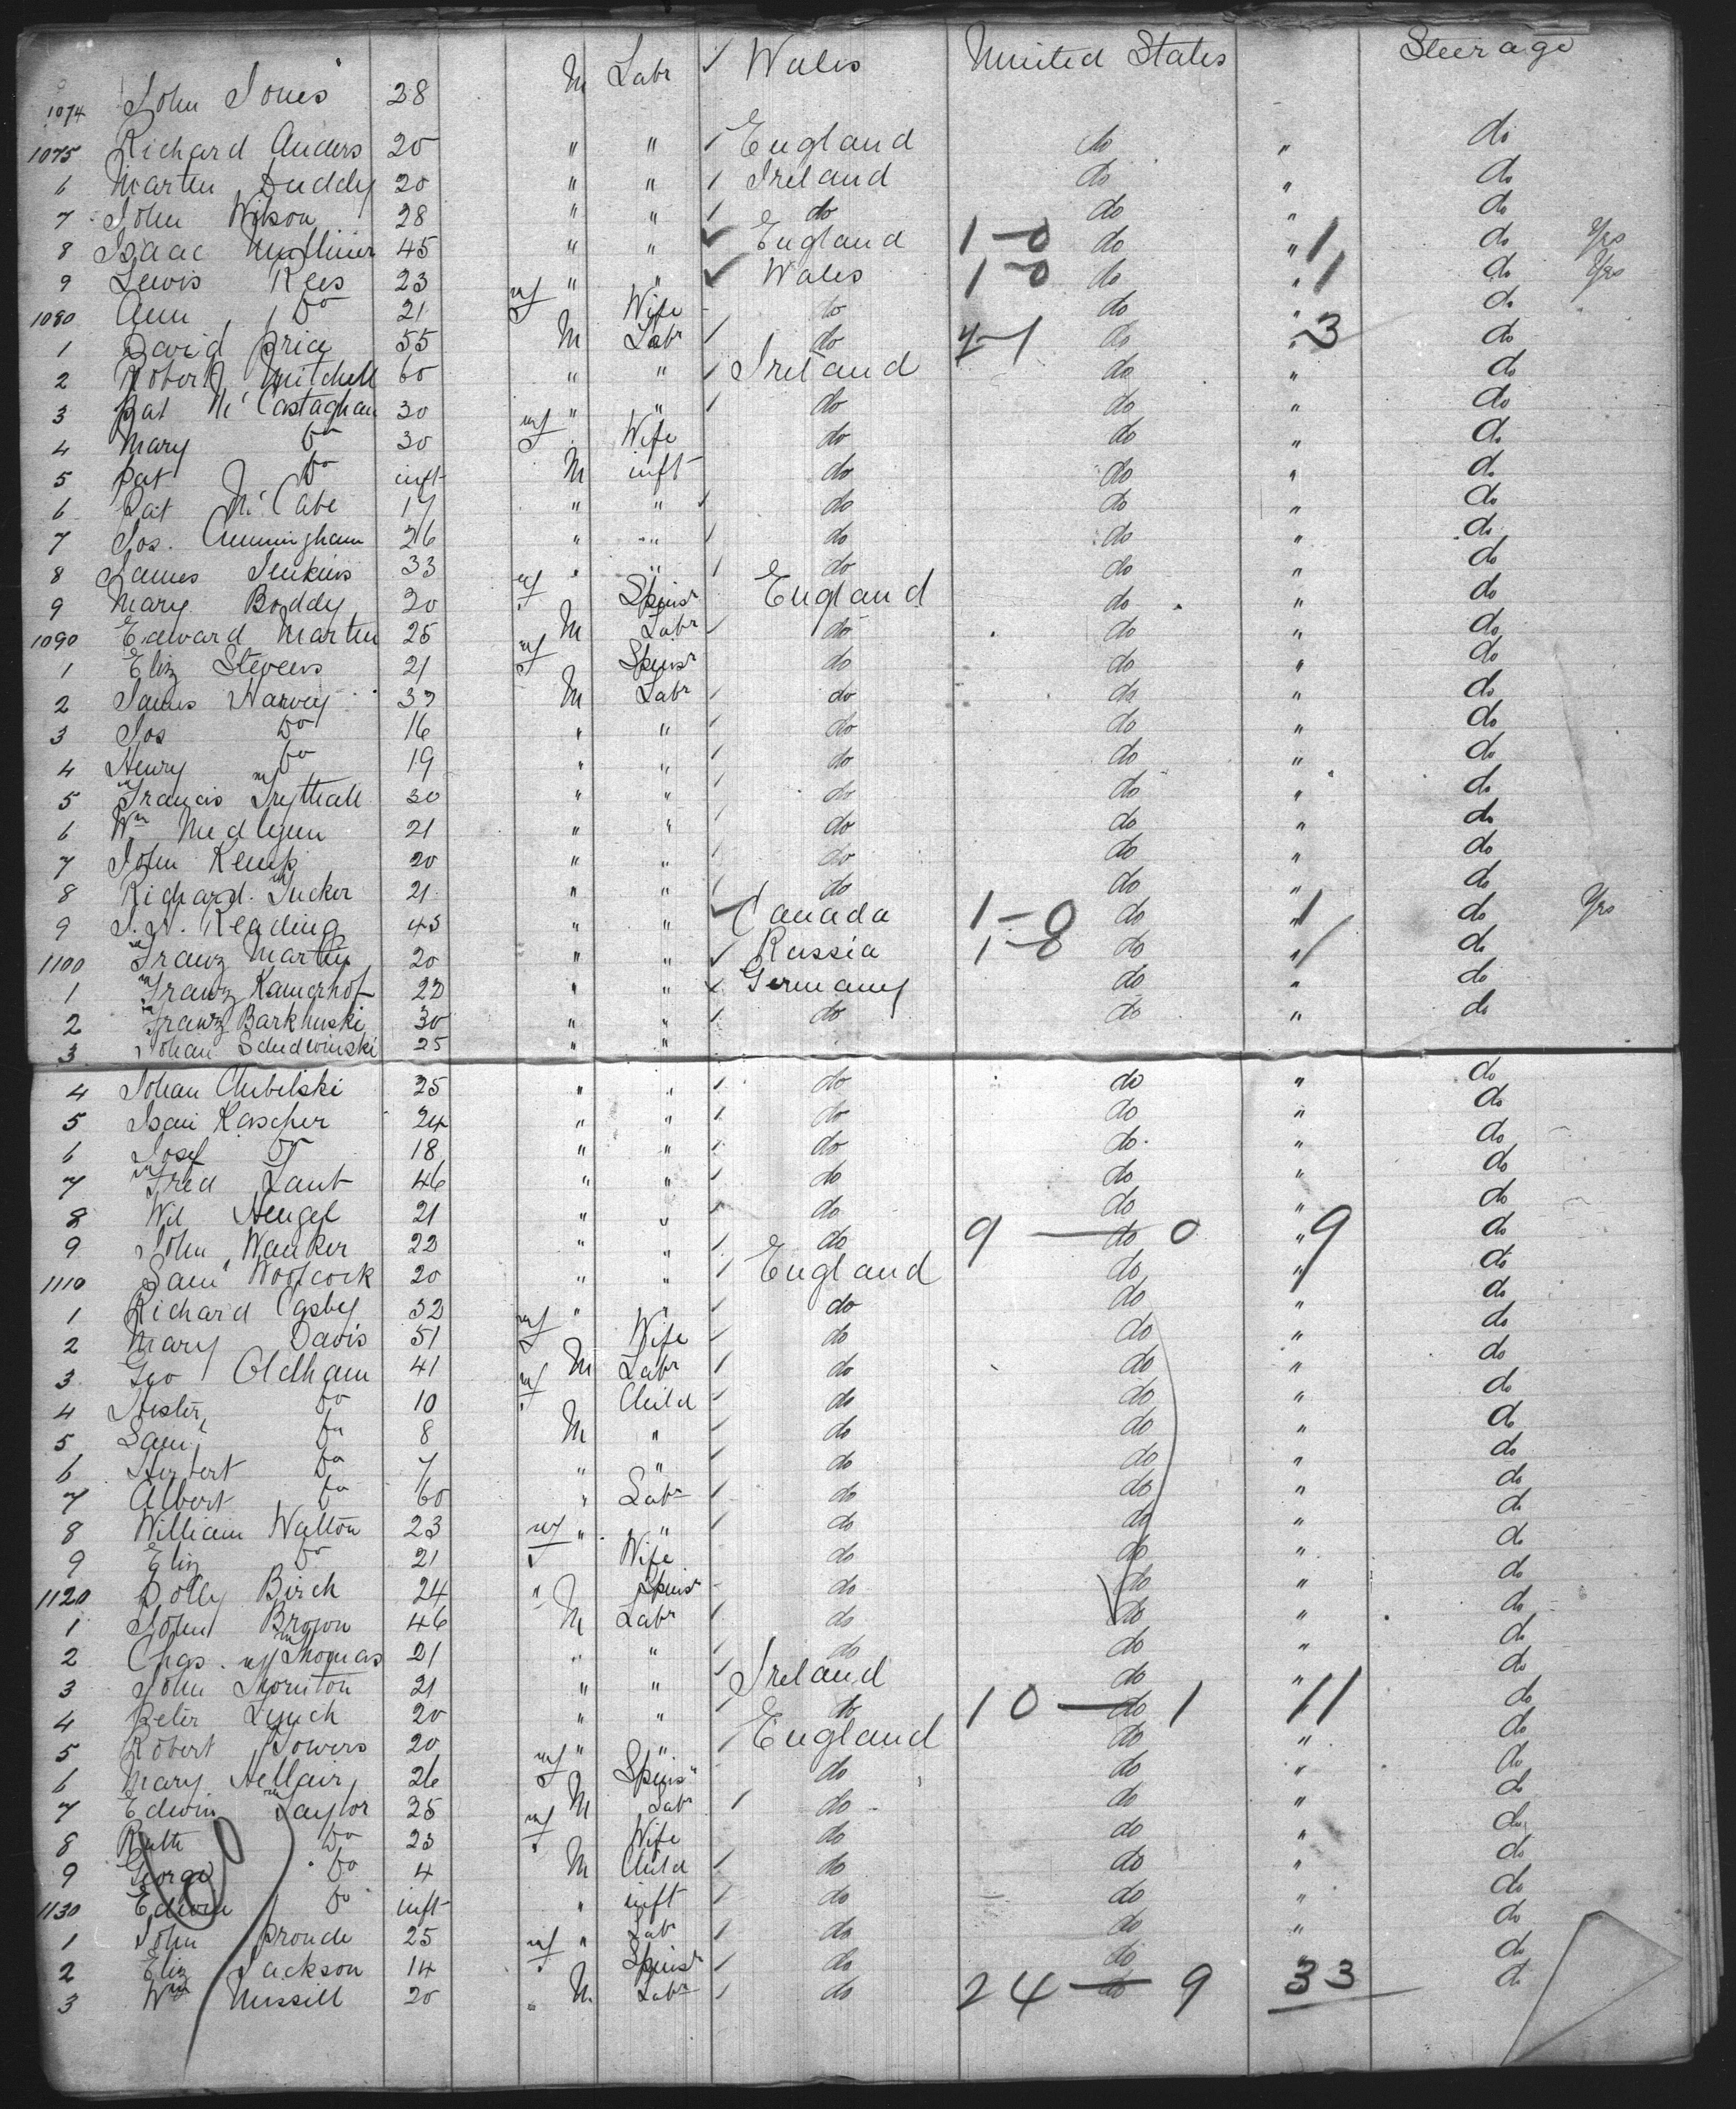 1074 John Jones 28 M Labr ✓ Wales United States Steerage
1075 Richard Anders 20 " " / England do " do
6 Martin Duddy 20 " " / Ireland do " do
7 John Wilson 28 " " / do do " do
8 Isaac 45 " " ✓ England 1-0 do " 1 do Yrs
9 Lewis Rees 23 " " ✓ Wales 1-0 do " 1 do Yrs
1080 Ann Do 21 f Wife do do " do
1 David Price 55 M Labr / do 2-1 do " 3 do
2 Robert Mitchell 60 " " / Ireland do " do
3 Pat Mc Castaghan 30 " " / do do " do
4 Mary Do 30 f Wife do do " do
5 Pat Do inft M inft do do " do
6 Pat Mc Cabe 17 " " / do do " do
7 Jos. Cunningham 26 " " / do do " do
8 James Jenkins 33 " " / do do " do
9 Mary Boddy 20 f Spinsr England do " do
1090 Edward Martin 25 M Labr / do do " do
1 Eliz Stevens 21 f Spinsr do do " do
2 James Harvey 39 M Labr / do do " do
3 Jos Do 16 " " / do do " do
4 Henry Do 19 " " / do do " do
5 Francis Trythall 30 " " / do do " do
6 Wm Medlyn 21 " " / do do " do
7 John Kemp 20 " " / do do " do
8 Richard Tucker 21 " " / do do " do
9 J. N. Reading 45 " " ✓ Canada 1-0 do " 1 do Yrs
1100 Franz Martin 20 " " ✓ Russia 1-0 do " / do
1 Franz Kamerhof 22 " " ✓ Germany do " do
2 Franz Barkhuski 30 " " / do do " do
3 Johan Schudwinski 25 " "
4 Johan Chibilski 25 " " / do do " do
5 Isai Kascher 24 " " / do do " do
6 Josef Do 18 " " / do do " do
7 Fred Laut 46 " " / do do " do
8 Wil Hengel 21 " " do do " do
9 John Wanker 22 " " / do 9 — do 0 " 9 do
1110 Saml Woolcock 20 " " / England do " do
1 Richard Casbey 32 " " / do do " do
2 Mary Davis 51 f Wife / do do " do
3 Geo Oldham 41 M Labr / do do " do
4 Hester Do 10 f Child / do do " do
5 Saml Do 8 M " / do do " do
6 Herbert Do 7 " " / do do " do
7 Albert Do 60 " Labr / do do " do
8 William Walton 23 " " / do do " do
9 Eliz Do 21 f Wife do do " do
1120 Dolly Birch 24 " Spinsr do do " do
1 John Brown 46 M Labr / do do " do
2 Chas. Thomas 21 " " / do do " do
3 John Thornton 21 " " / Ireland do " do
4 Peter Lynch 20 " " / do 10 — do 1 11 do
5 Robert Towers 20 " " / England do " do
6 Mary Hellair 26 f Spins do do " do
7 Edwin Taylor 25 M Lab / do do " do
8 Ruth Do 23 f Wife do do " do
9 George Do 4 M Child / do do " do
1130 Edwin Do inft " inft / do do " do
1 John Proude 25 " Lab / do do " do
2 Eliz Jackson 14 f Spinsr / do do " do
3 Wm Mussill 20 M Labr / do 24 — do 9 33 do